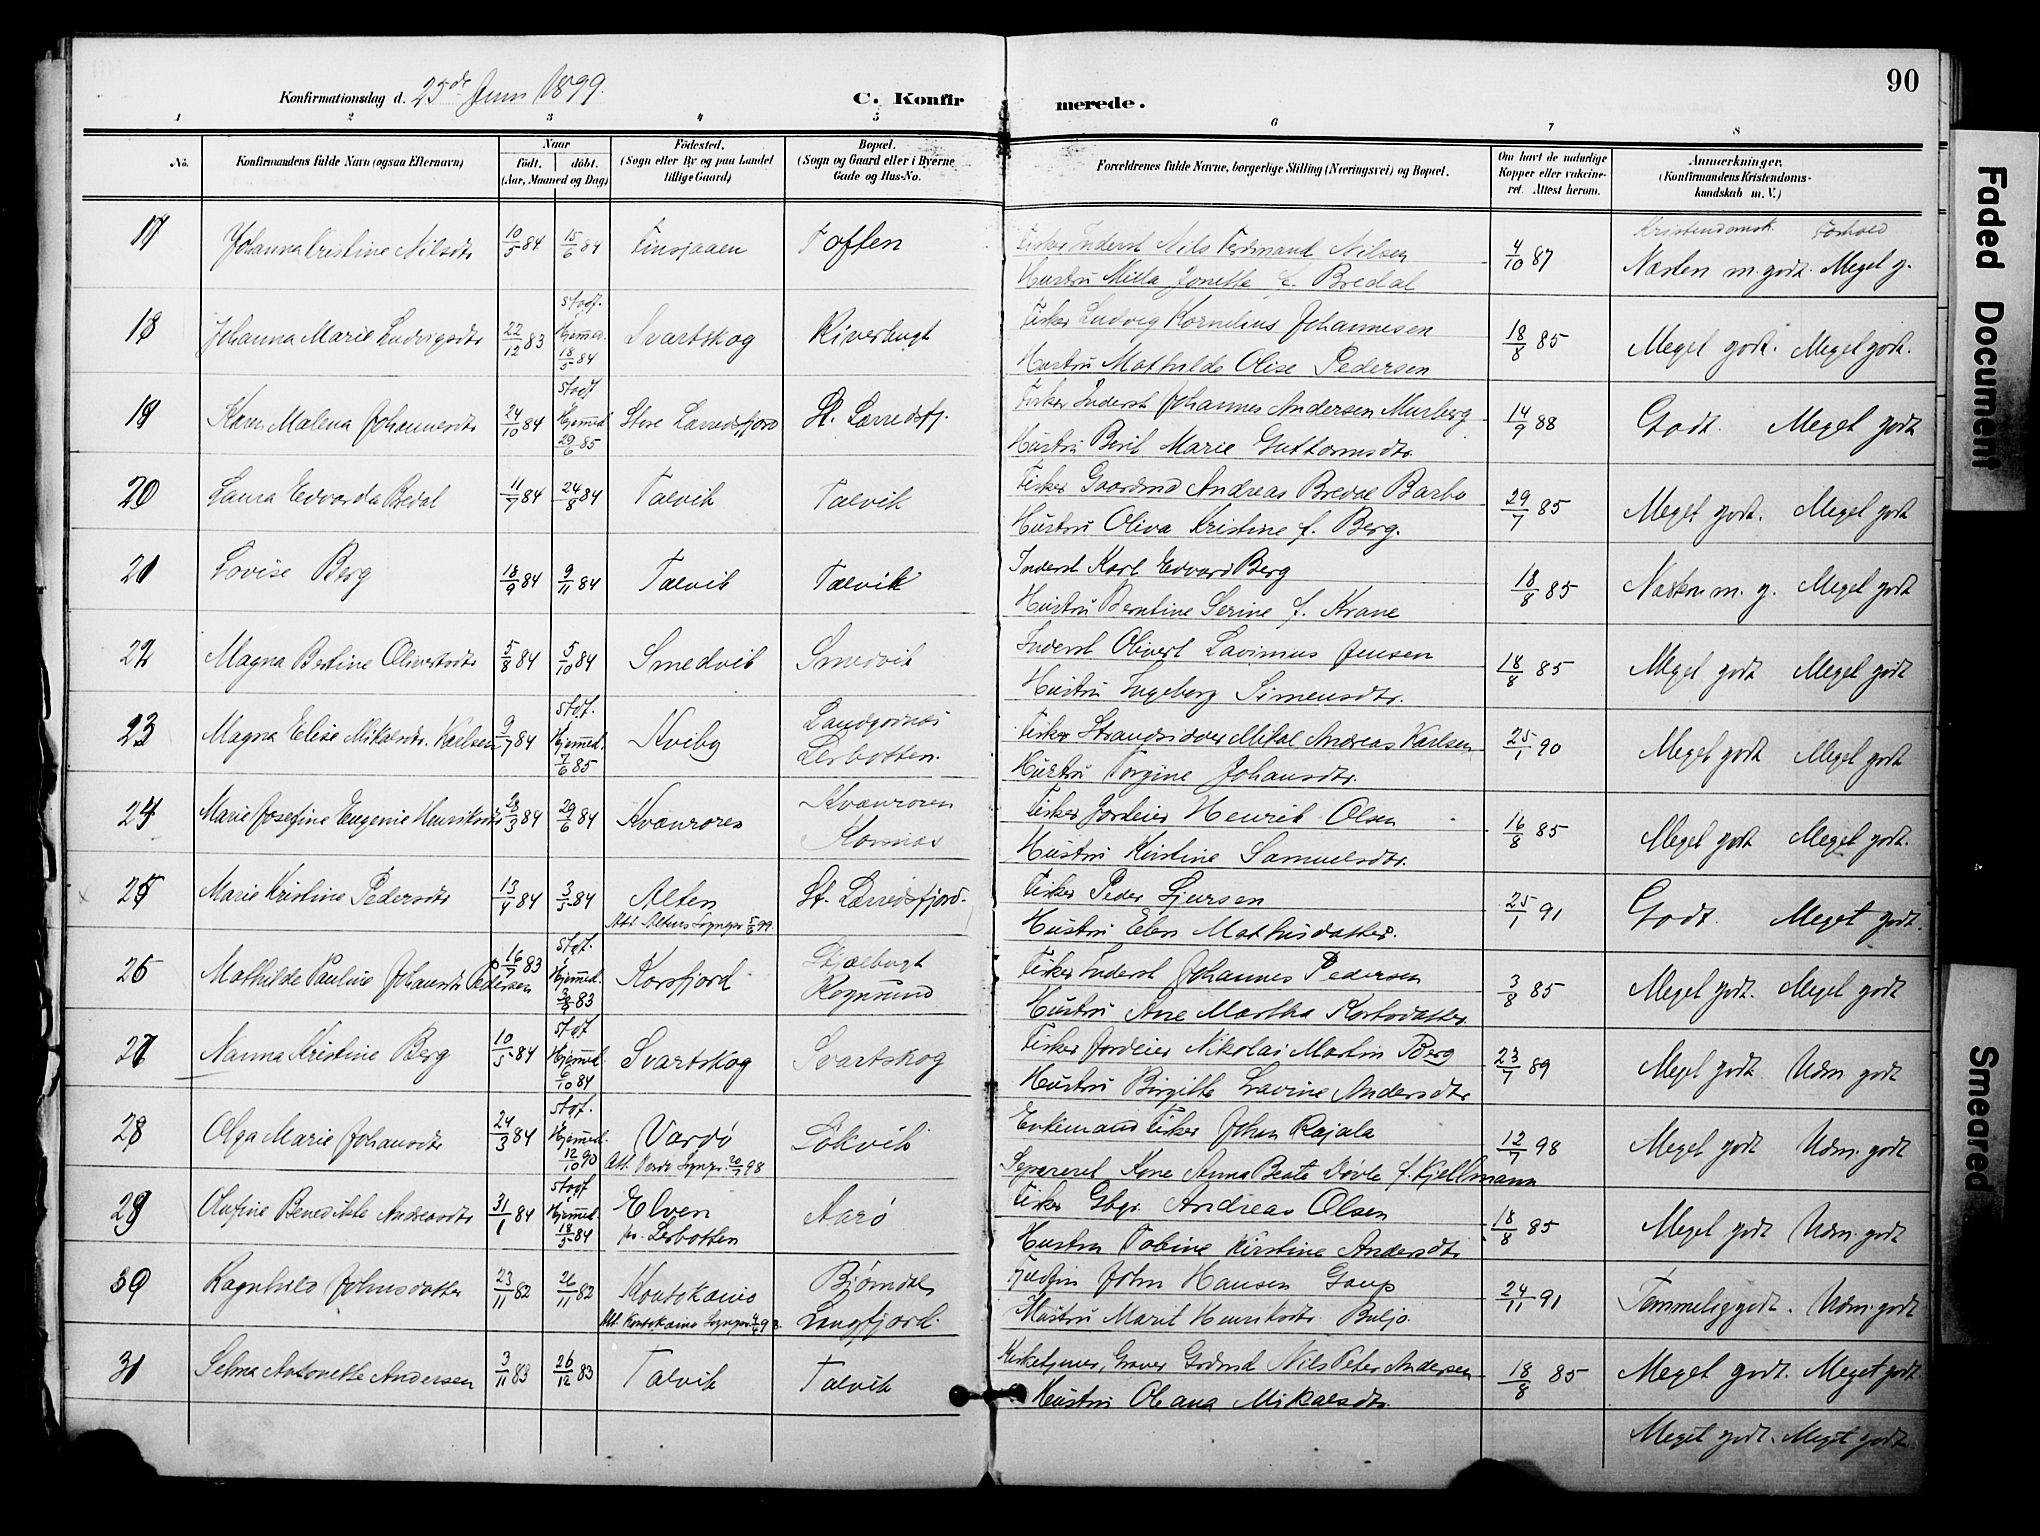 90
Konfirmationsdag d. 25de Juni 1899.
C. Konfir merede.
1 2 3 4 5 6 7 8
No.
Konfirmandens fulde Navn (ogsaa Efternavn)
Naar
født. døbt.
(Aar, Maaned og Dag)
Fødested.
(Sogn eller By og paa Landet
tillige Gaard)
Bopæl.
(Sogn og Gaard eller i Byerne
Gade og Hus-No.
Forældrenes fulde Navne, borgerlige Stilling (Næringsvei) og Bopæl.
Om havt de naturlige
Kopper eller vakcine-
ret. Attest herom.
Anmærkninger,
(Konfirmandens Kristendoms-
kundskab m. V.)
Kristendomsk. Forhold
17 Johanna Kristine Nilsdtr 10/5 84 15/6 84 Finsjaaen Toften
Fisker Inderst Nils Ferdinand Nilsen
Hustru Milla Jonette f. Bredal
4/10 87 Næsten m. godt. Meget g.
18 Johanna Marie Ludvigsdtr 22/12 83 stadf. Hjemmed. 18/5 84 Svartskog Kiverbugt
Fisker Ludvig Kornelius Johannesen
Hustru Mathilde Olise Pedersen
18/8 85 Meget godt. Meget godt.
19 Karen Malena Johannesdtr 24/10 84 stadf. Hjemmed 29/6 85 Store Lerredsfjord St. Lerredsfj.
Fisker Inderst Johannes Andersen Murberg
Hustru Beril Marie Guttormsdtr.
14/9 88 Godt. Meget godt
20 Laura Edvarda Bredal 11/7 84 24/8 84 Talvik Talvik
Fisker Gaardmd Andreas Bredal Barbo
Hustru Oliva Kristine f. Berg.
29/7 85 Meget godt. Meget godt
21 Lovise Berg 18/9 84 9/11 84 Talvik Talvik
Inderst Karl Edvard Berg
Hustru Berntine Serine f. Krane
18/8 85 Næsten m. g. Meget godt
22 Magna Bertine Olivertsdtr 5/8 84 5/10 84 Smedvik Smedvik
Inderst Olivert Lavimus Jensen
Hustru Ingeborg Simensdtr.
18/8 85 Meget godt Meget godt
23 Magna Elise Mikalsdtr. Karlsen 9/7 84 stdf. Hjemmed. 7/6 85 Kviby
Lerbotten.
Fisker Strandsidder Mikal Andreas Karlsen
Hustru Torgine Johansdtr.
25/1 90 Meget godt Meget godt
24 Marie Josefine Eugenie Henriksdtr 28/3 84 29/6 84 Kvænroren Kvænroren
Kornnes
Fisker Jordeier Henrik Olsen
Hustru Kirstine Samuelsdtr.
16/8 85 Meget godt Meget godt.
25 Marie Kristine Pedersdtr 13/4 84 3/5 84 Alten St. Lerredsfjord.
Att. Altens Sognepr 5/6 99.
Fisker Peder Sjursen
Hustru Elen Mathisdatter.
25/1 91 Godt. Meget godt.
26 Mathilde Pauline Johansdtr Pedersen 16/7 83 stdf. Hjemmed. 83 Korsfjord
Rognsund
Fisker Inderst Johannes Pedersen
Hustru Ane Martha
3/8 85 Meget godt. Meget godt
27 Nanna Kristine Berg 10/5 84 stdf. Hjemmed 6/10 84 Svartskog Svartskog
Fisker Jordeier Nikolai Martin Berg
Hustru Birgitte Lavine Andersdtr
23/7 89 Meget godt Udm. godt
28 Olga Marie Johansdtr 24/3 84 stdf. Hjemmed. 12/10 90 Vardø Løkvik
Att. Vardø Sognepr. 20/7 98
Enkemand Fisker Johan Rajala
Separeret Kone Anna Beate Døvle f. Kjellmann
12/7 98 Meget godt Udm. godt
29 Olufine Benedikte Andreasdtr 31/1 84 stadf. Hjemmed 18/5 84 Elven Aarø
pr. Lerbotten
Fisker Gbgr. Andreas Olsen
Hustru Tobine Kirstine Andersdtr
18/8 85 Meget godt Udm. godt
30 Ragnhild Johnsdatter 23/11 82 26/11 82 Koutokeino Bjørndal
Att. Koutokeino Sognepr. Langfjord.
Fjeldfin John Hansen Gaup
Hustru Marit Henriksdtr Buljo.
24/11 91 Temmelig godt. Udm. godt
31 Selma Antonette Andersen 3/11 83 26/12 83 Talvik Talvik
Kirketjener, Graver Grdmd Nils Peter Andersen
Hustru Oleana Mikalsdtr.
18/8 85 Meget godt. Meget godt.
Meget godt. Meget godt
Faded Document
Smeared